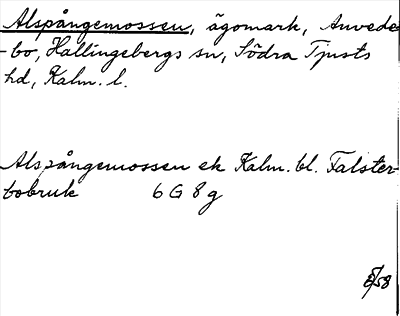 Alspångemossen, ägomark, Anvede-
-bo, Hallingebergs sn, Södra Tjusts
hd, Kalm. l.
Alspångemossen ek Kalm. bl. Falster-
bobruk 6 G 8 g